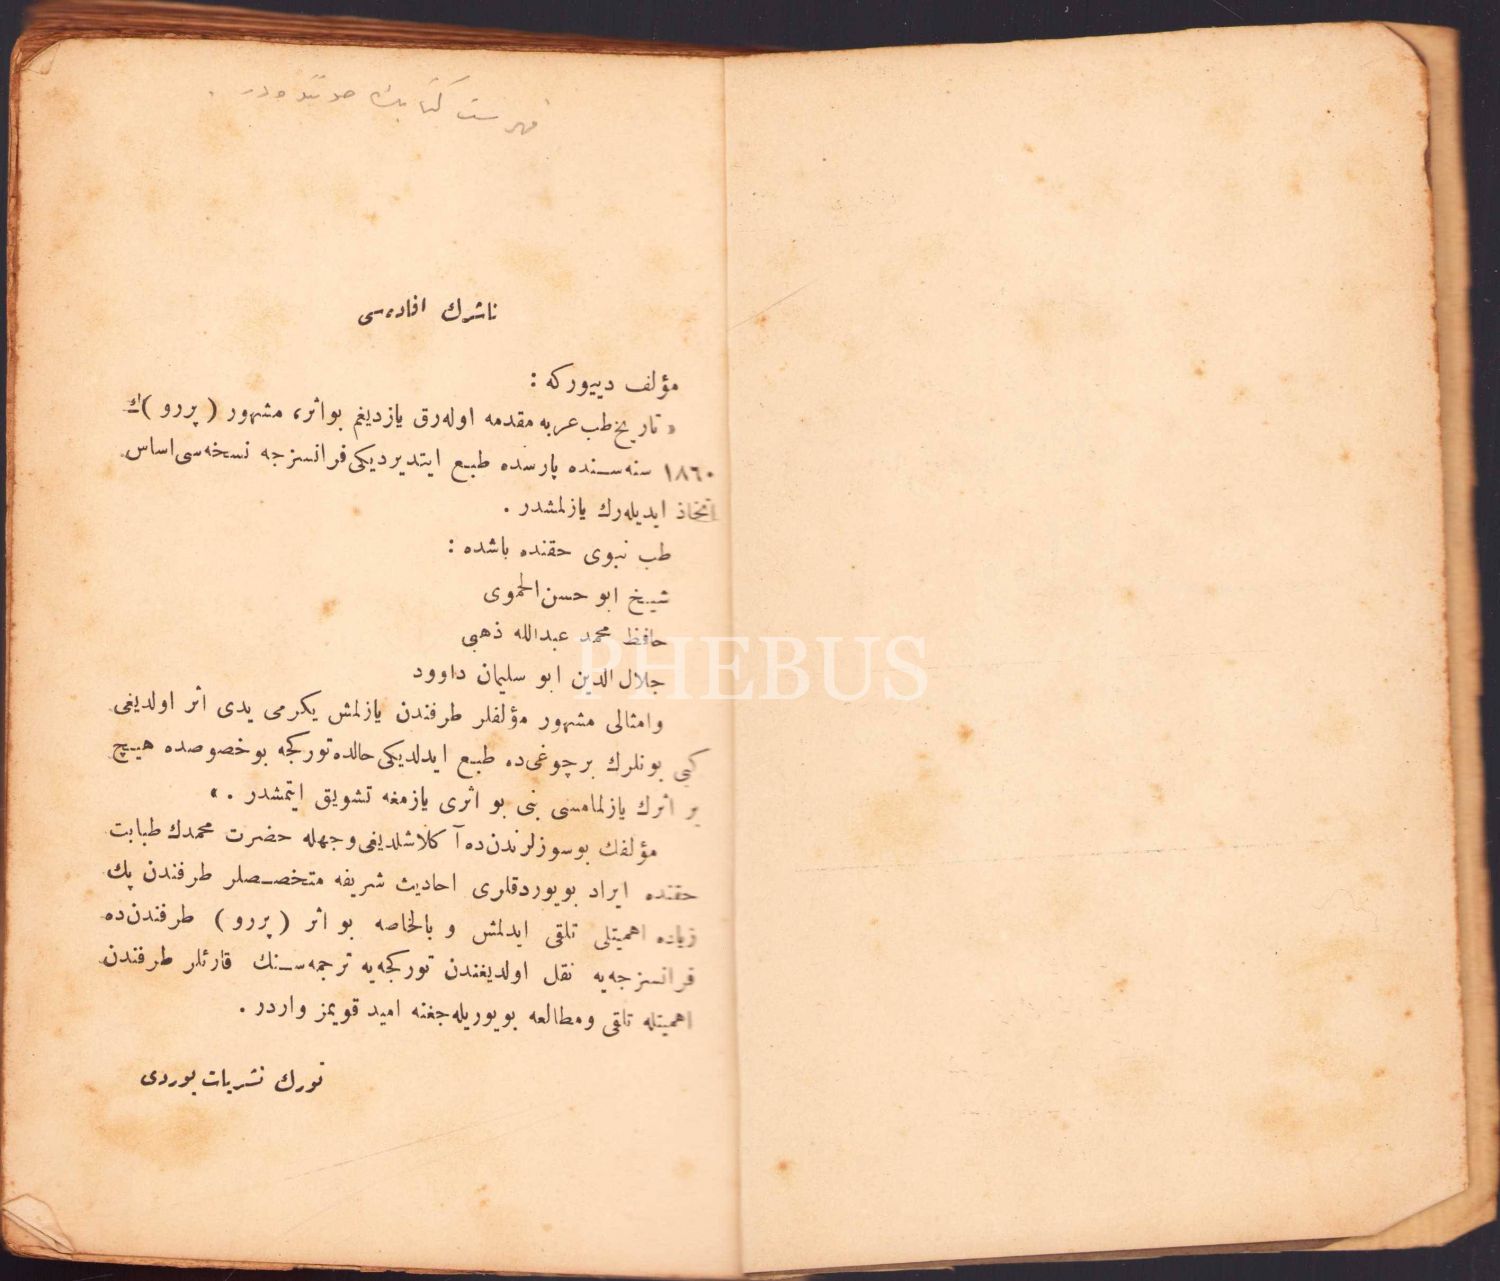 فهرست كتابك صوكنده در .
ناشرك افاده‌سی
مؤلف دییوركه :
« تاریخ طب عربه مقدمه اوله‌رق یازدیغم بو اثر، مشهور ( پررو ) ك
١٨٦٠ سنه‌سنده پارسده طبع ایتدیردیكی فرانسزجه نسخه‌سی اساس
اتخاذ ایدیله‌رك یازلمشدر .
طب نبوی حقنده باشده :
شیخ ابو حسن الحموی
حافظ محمد عبدالله ذهبی
جلال الدین ابو سلیمان داوود
وامثالی مشهور مؤلفلر طرفندن یازلمش یكرمی یدی اثر اولدیغی
كبی بونلرك بر چوغی‌ده طبع ایدلدیكی حالده توركجه بو خصوصده هیچ
بر اثرك یازلمامسی بنی بو اثری یازمغه تشویق ایتمشدر . »
مؤلفك بو سوزلرندن ده آ كلاشلدیغی وجهله حضرت محمدك طبابت
حقنده ایراد بویوردقلری احادیث شریفه متخصصلر طرفندن پك
زیاده اهمیتلی تلقی ایدلمش و بالخاصه بو اثر ( پررو ) طرفندن ده
فرانسزجه‌یه نقل اولدیغندن توركجه‌یه ترجمه‌سنك قارئلر طرفندن
اهمیتله تلقی ومطالعه بویوریله‌جغنه امید قویمز واردر .
تورك نشریات یوردی
PHEBUS